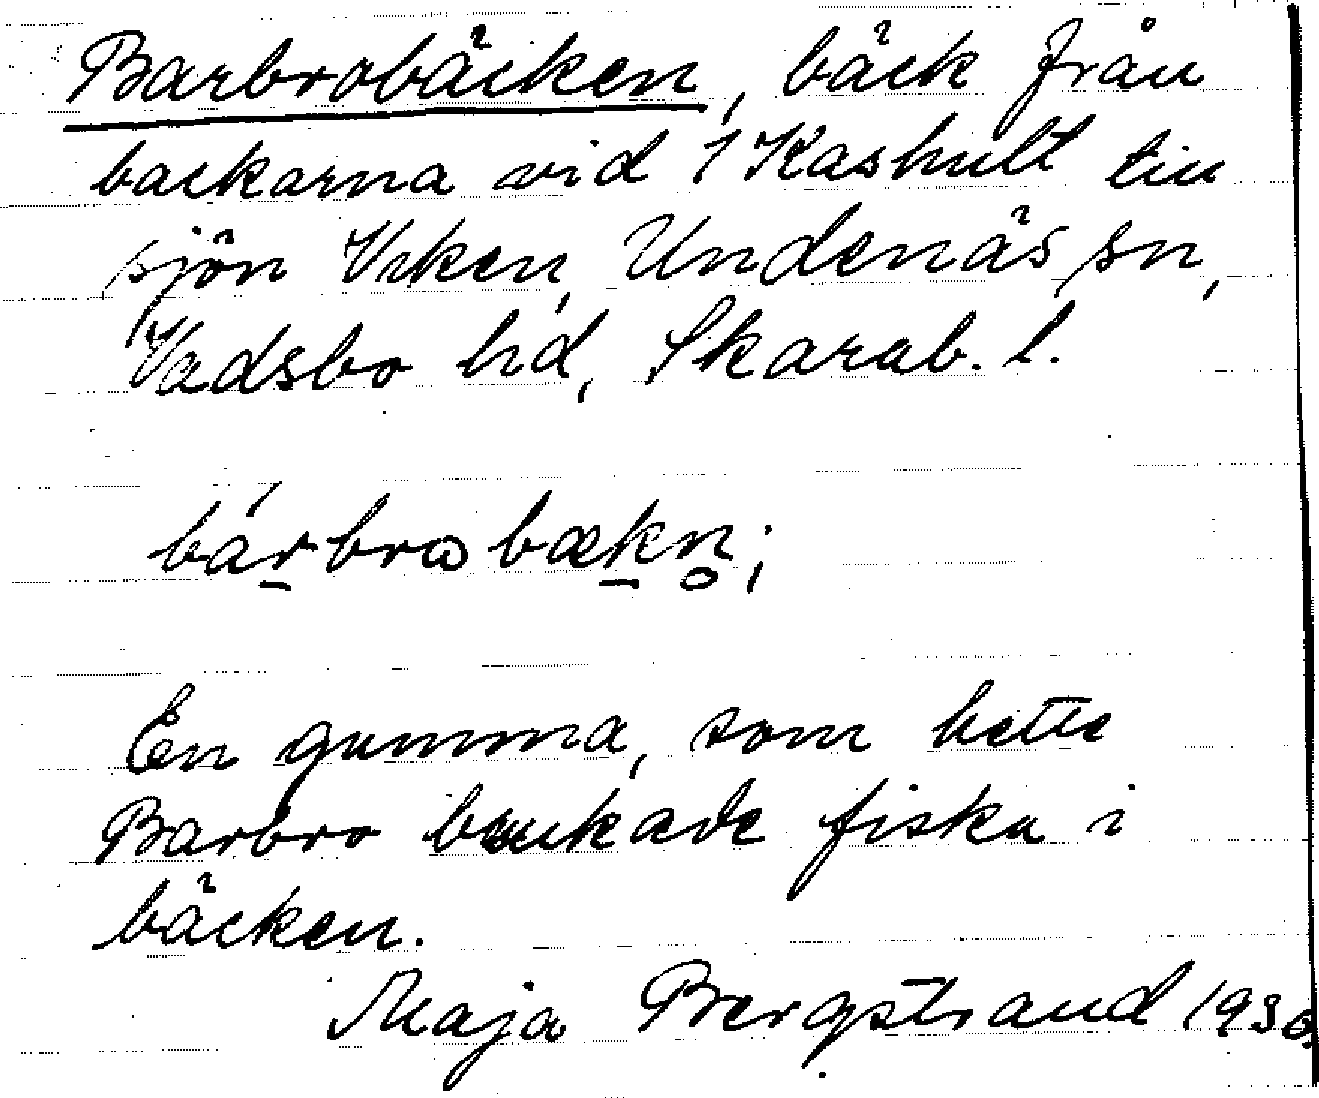 Barbrobäcken, bäck från
backarna vid 1 Kashult till
sjön Viken, Undenäs sn,
Vadsbo hd, Skarab. l.
bárbrωbækn̥;
En gumma, som hette
Barbro brukade fiska i
bäcken.
Maja Bergstrand 1930.